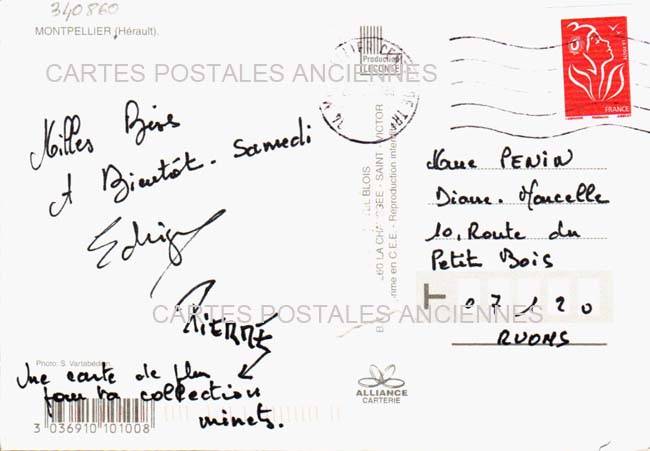 340860
MONTPELLIER (Hérault).
CARTES POSTALES ANCIENNES
Production
LECONTE
LA POSTE
FRANCE
Milles Bises
A Bientôt. Samedi
PIERRE
Une carte de plus
pour ta collection
minets.
Photo: S. Vartabédian
3 036910 101008
BLOIS
LA CHAUSSÉE - SAINT - VICTOR
en C.E.E. - Reproduction interdite
Mme PENIN
Diane. Marcelle
10, Route du
Petit Bois
07120
RUOMS
CARTES POSTALES ANCIENNES
ALLIANCE
CARTERIE